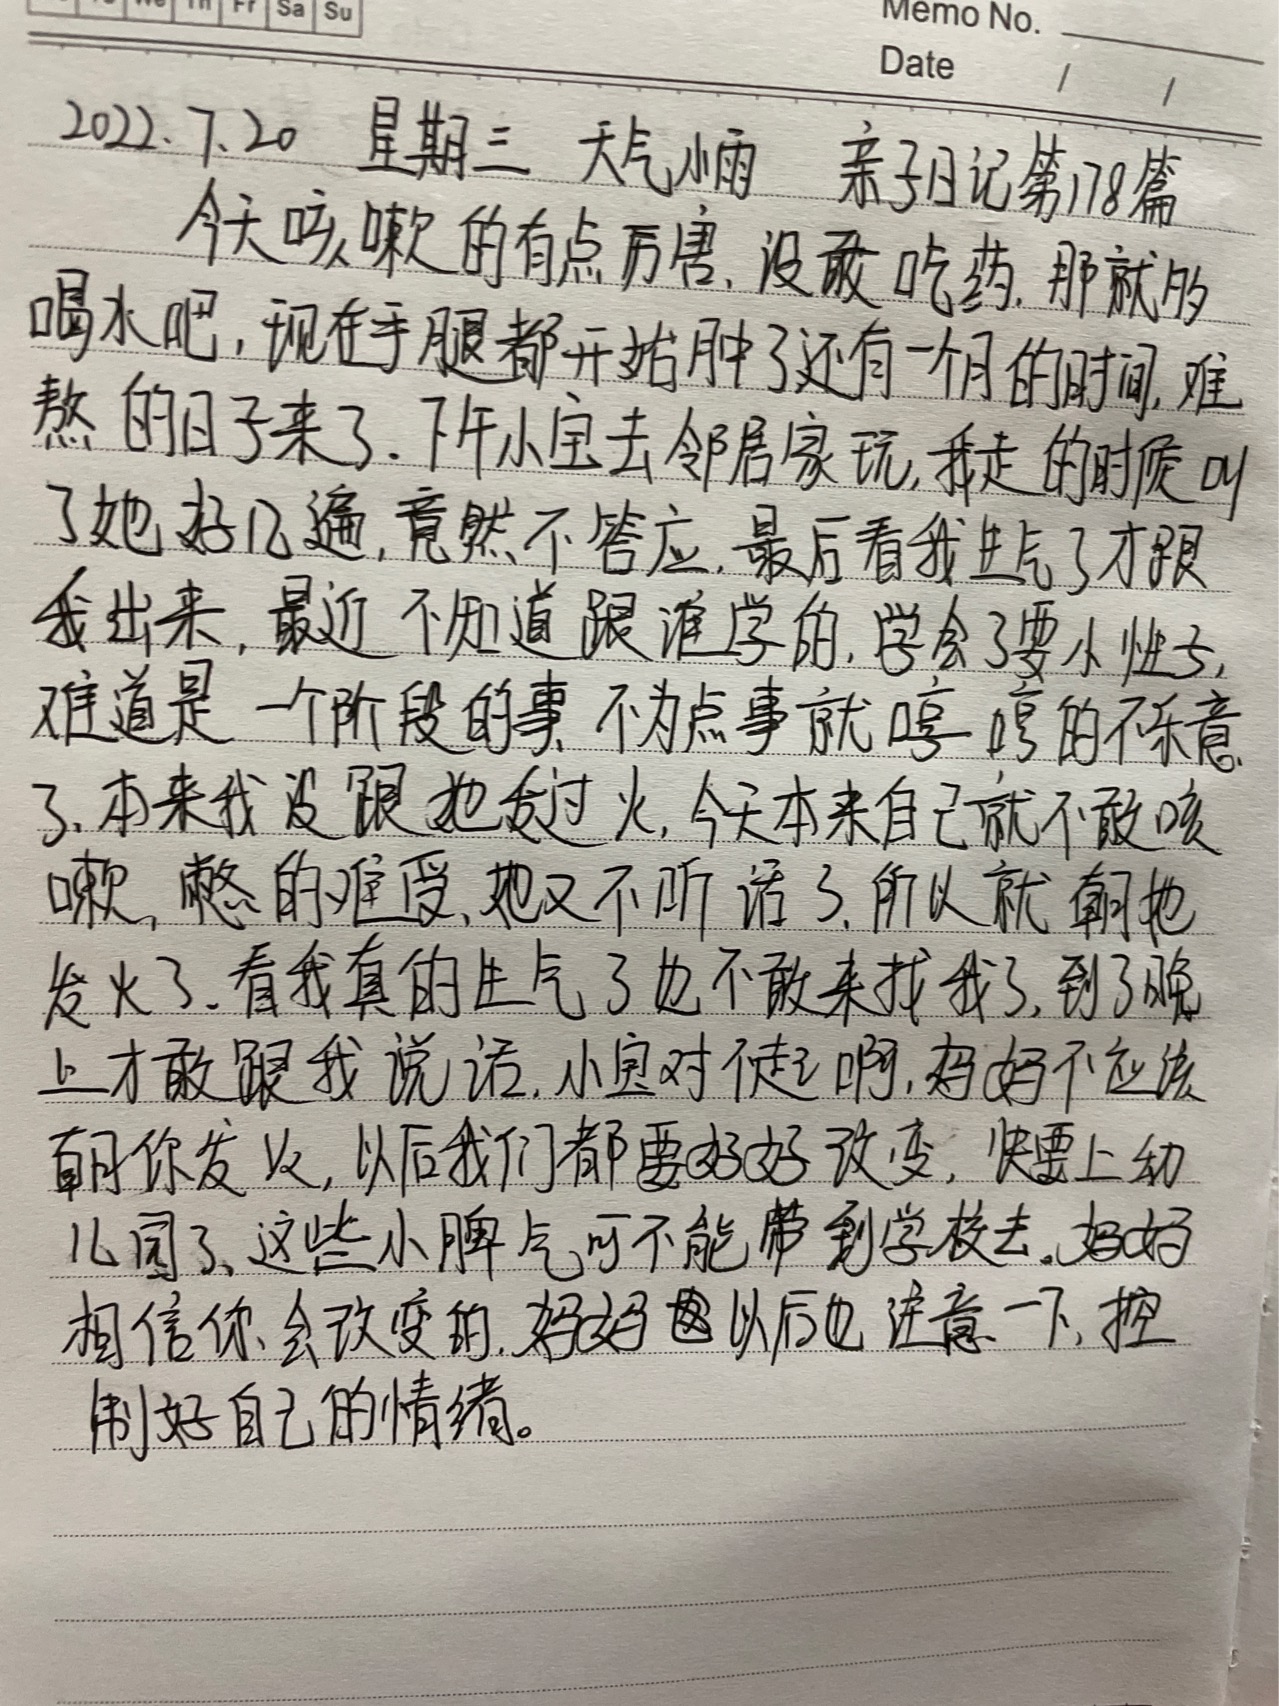 We Th Fr Sa Su
Memo No.
Date / /
2022.7.20 星期三 天气小雨 亲子日记第178篇
今天咳嗽的有点厉害、没敢吃药.那就多
喝水吧,现在手腿都开始肿了还有一个月的时间,难
熬的日子来了.下午小宝去邻居家玩,我走的时候叫
了她好几遍,竟然不答应.最后看我生气了才跟
我出来,最近不知道跟谁学的,学会了耍小性子,
难道是一个阶段的事、不为点事就哼哼的不乐意
了、本来我没跟她发过火,今天本来自己就不敢咳
嗽,憋的难受、她又不听话了,所以就朝她
发火了.看我真的生气了也不敢来找我了,到了晚
上才敢跟我说话.小宝对不起啊,妈妈不应该
朝你发火,以后我们都要好好改变,快要上幼
儿园了、这些小脾气可不能带到学校去。妈妈
相信你会改变的.妈妈以后也注意一下,控
制好自己的情绪。